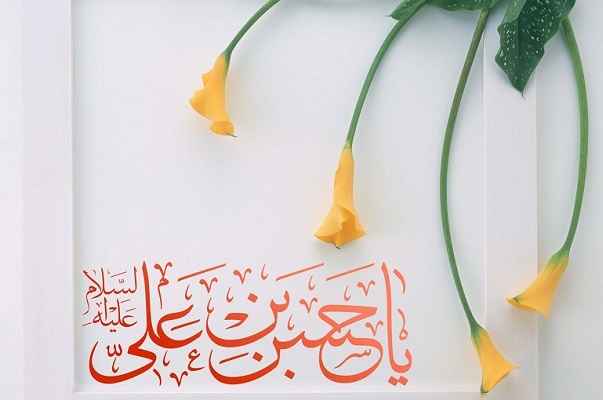 يا حسن بن عليّ عليه السّلام